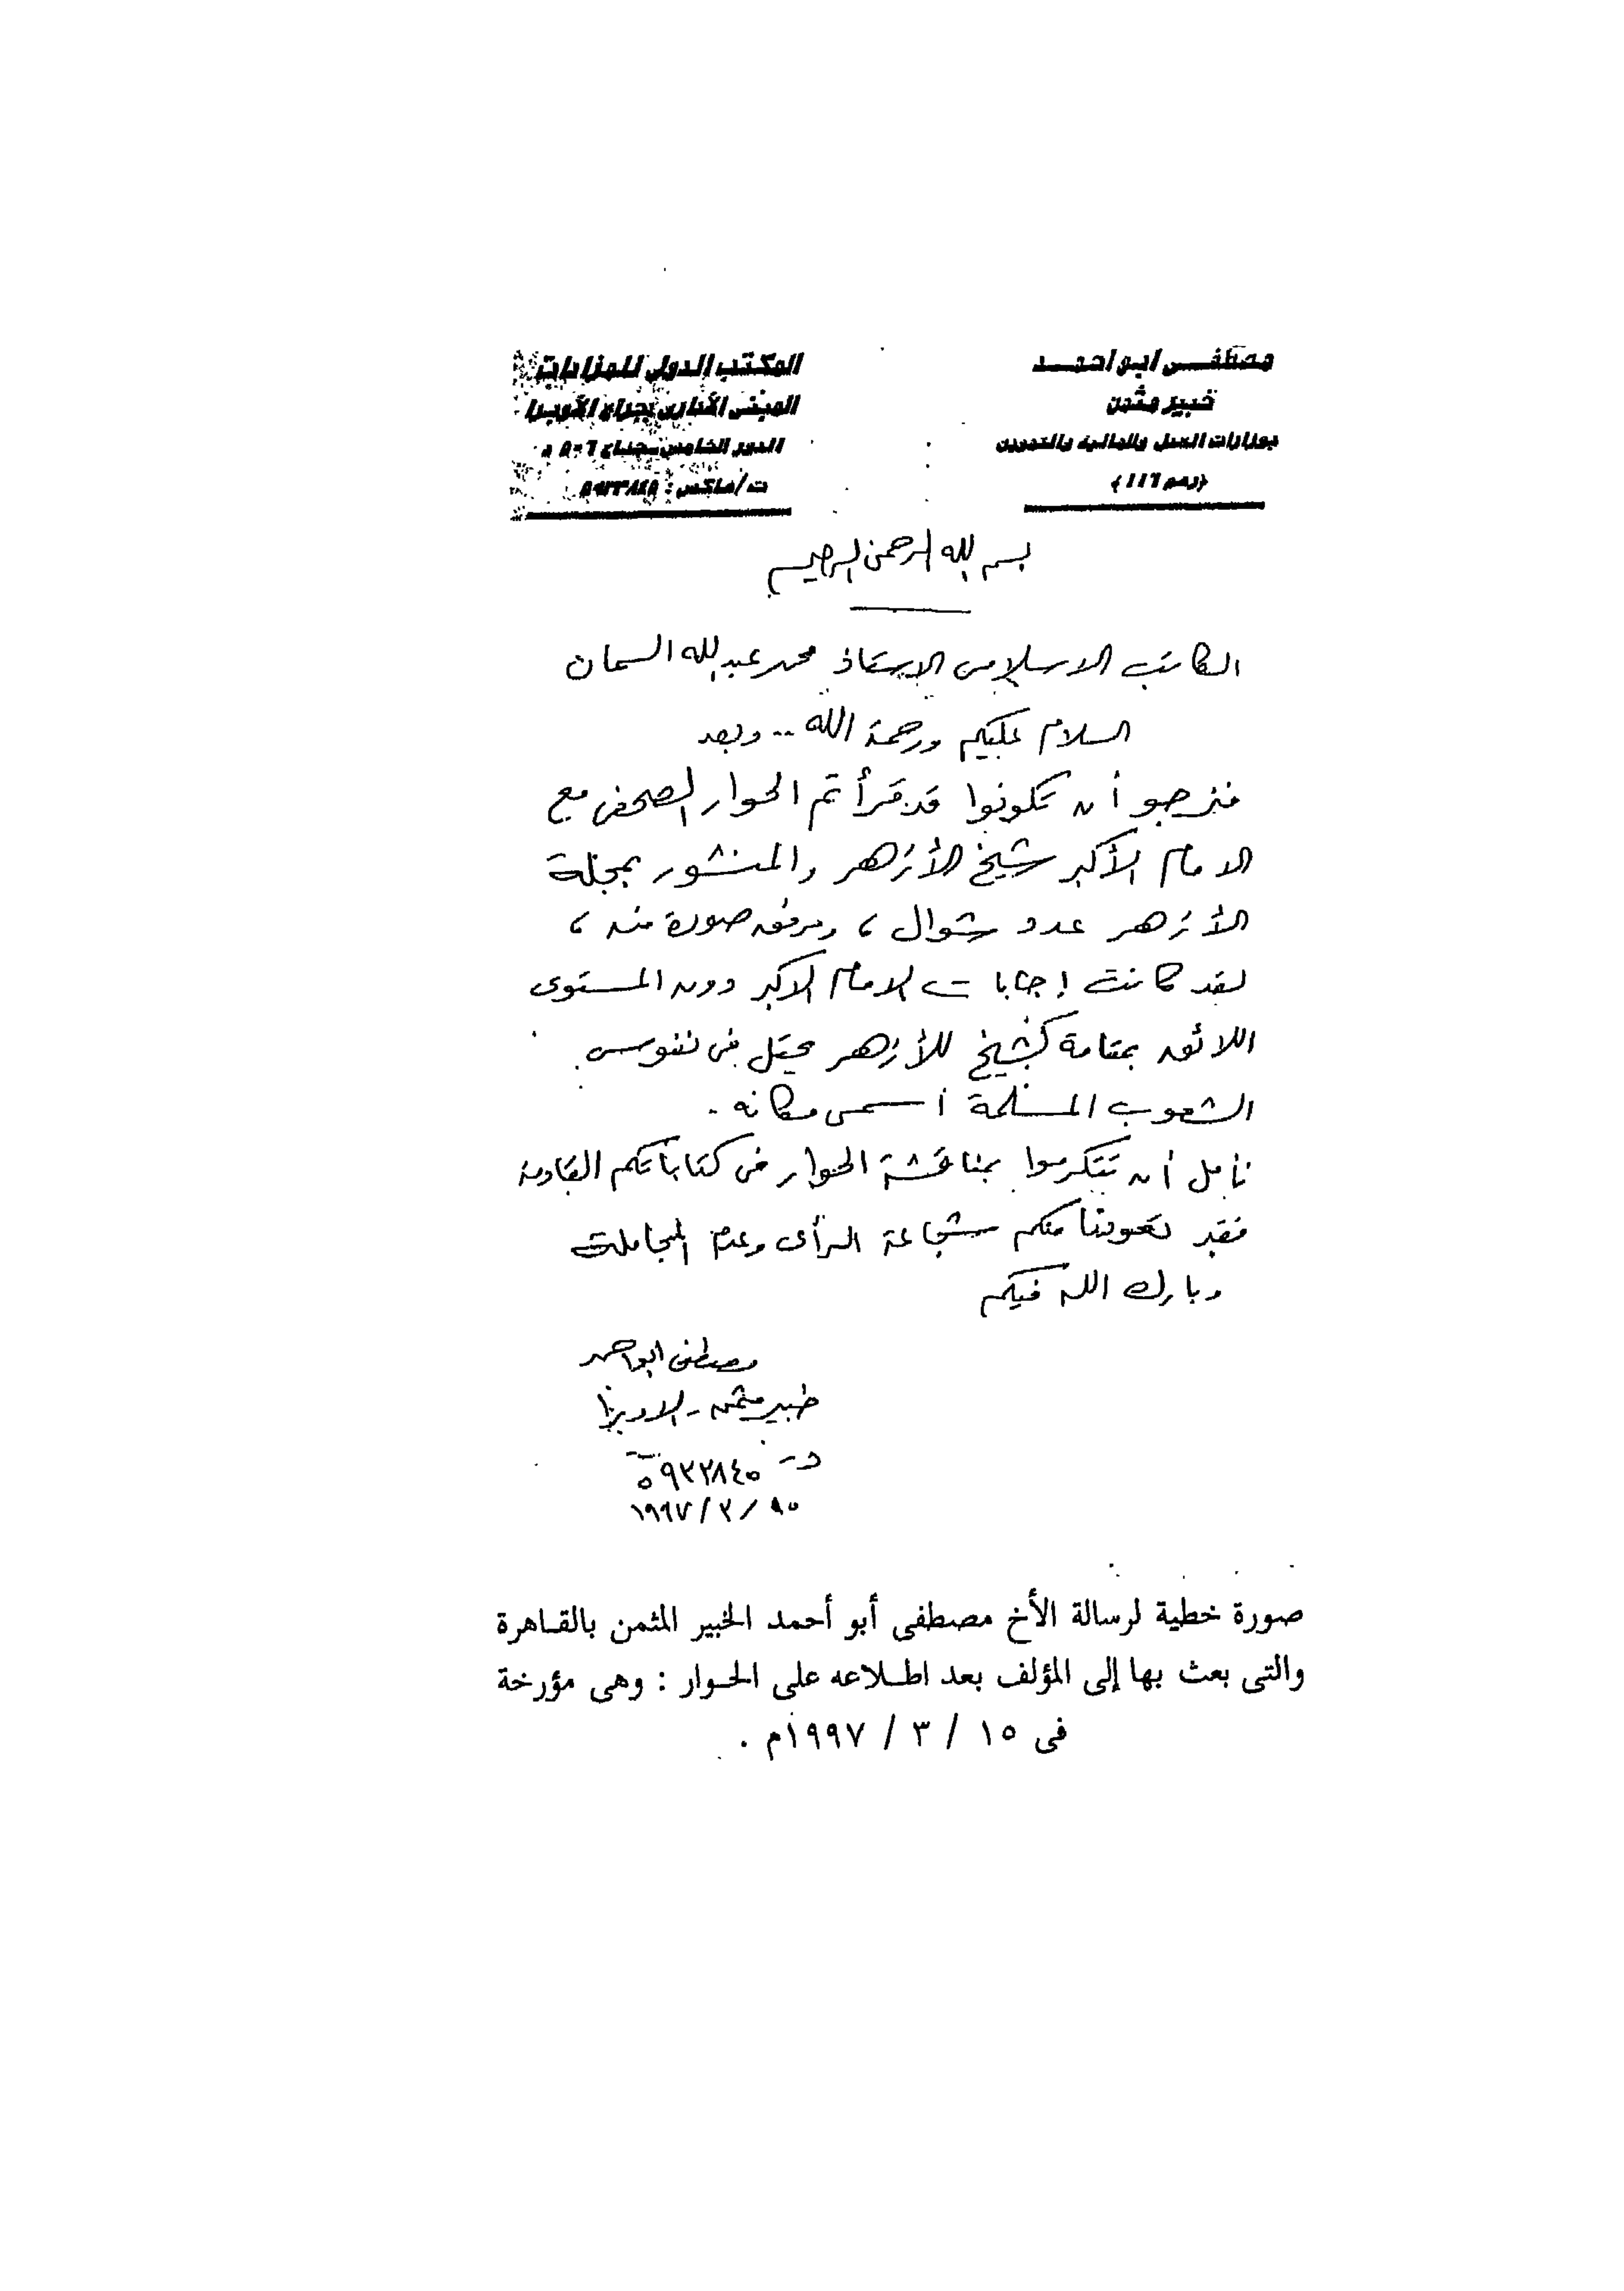 مصطفى ابو احمد
خبير مثمن
بوزارات العدل والمالية والتموين
(رقم ١١٦)
المكتب الدولى للمزادات
المبنى الأدارى بجراج الأوبرا
الدور الخامس - جناح ٥٠٦
ت/فاكس :
بسم الله الرحمن الرحيم
الكاتب الاسلامى الاستاذ محمد عبد الله السمان
السلام عليكم ورحمة الله .. وبعد
فنرجو أن تكونوا قد قرأتم الحوار الصحفى مع
الامام الأكبر شيخ الأزهر والمنشور بمجلة
الأزهر عدد شوال ، ومرفق صورة منه ،
لقد كانت إجابات الامام الاكبر دون المستوى
اللائق بمقامة كشيخ للأزهر يحتل فى نفوس
الشعوب المسلمة أسمى مكانه .
نأمل أن تتكرموا بمناقشة الحوار فى كتاباتكم القادمة
فقد تعودنا منكم شجاعة الرأى وعدم المجاملة
وبارك الله فيكم
مصطفى ابو احمد
خبير مثمن - الاوبرا
١٩٩٧/٣/١٥
صورة خطية لرسالة الأخ مصطفى أبو أحمد الخبير المثمن بالقاهرة
والتى بعث بها إلى المؤلف بعد اطلاعه على الحوار : وهى مؤرخة
فى ١٥ / ٣ / ١٩٩٧م .